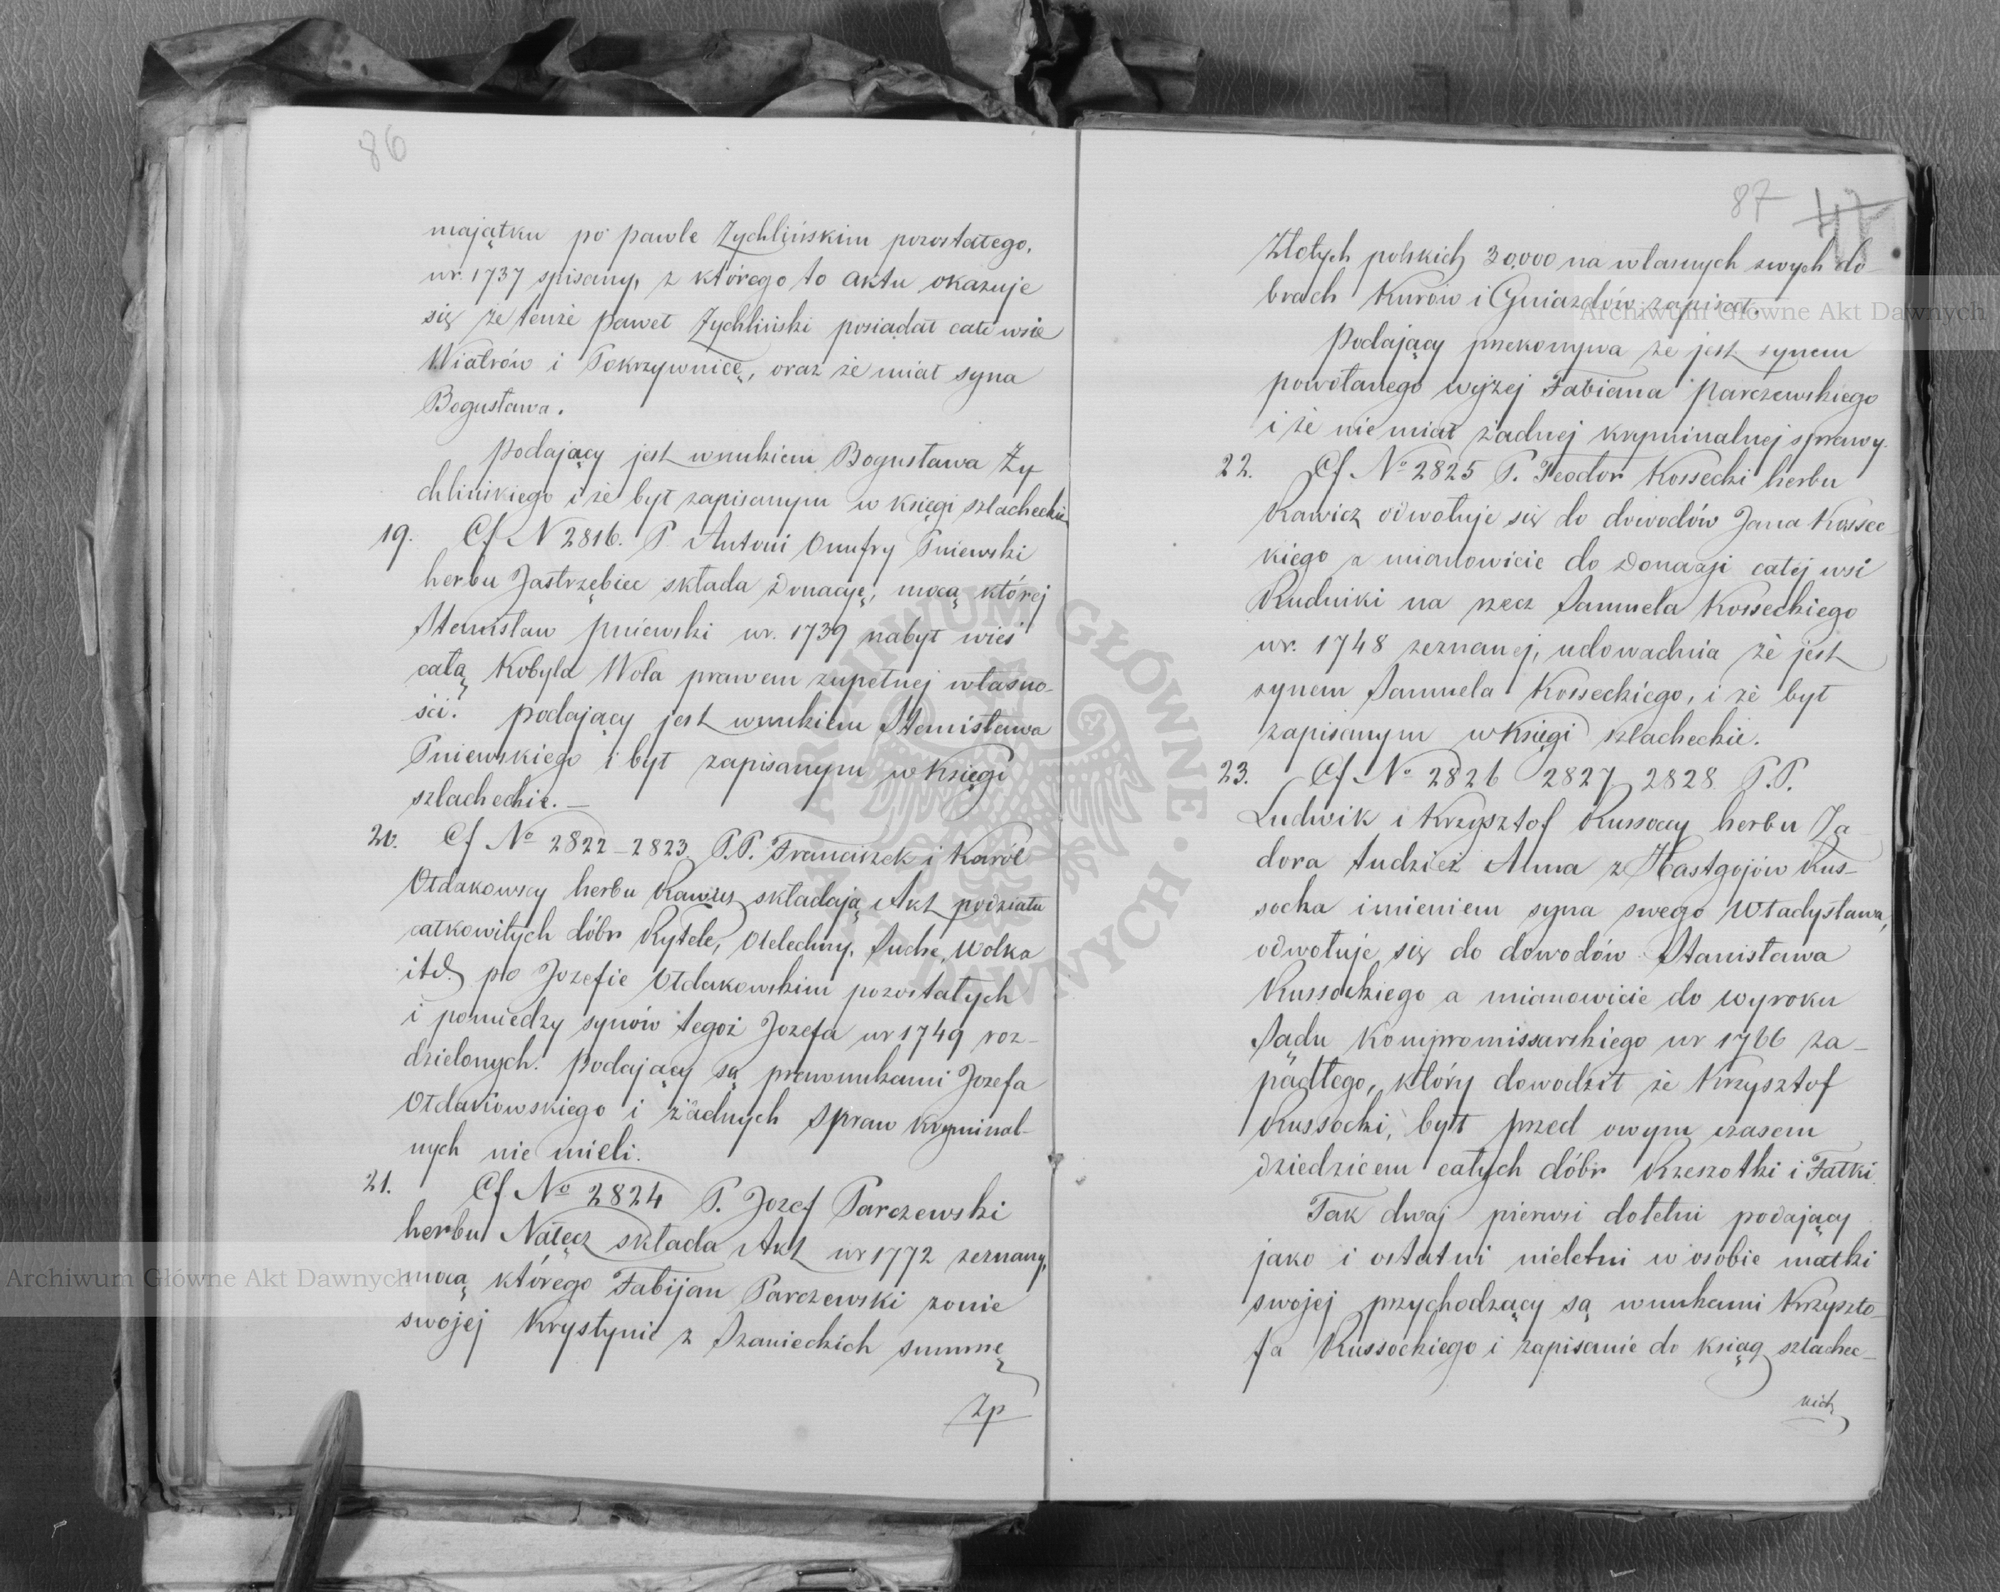 86
majątku po pawle Zychlińskim pozostałego,
w r. 1737 spisany, z którego to aktu okazuje
się że tenże paweł Zychliński posiadał całe wsie
Wiatrów i Pokrzywnicę, oraz że miał syna
Bogusława.
podający jest wnukiem Bogusława Zy
chlińskiego i że był zapisanym w księgi szlacheckie
19. Cf N 2816. P. Antoni Onufry Pniewski
herbu Jastrzębiec składa Donacyę, mocą której
Stanisław pniewski w r. 1739 nabył wieś
całą Kobyla Wola prawem zupełnej własno-
ści. podający jest wnukiem Stanisława
Pniewskiego i był zapisanym w Księgi
szlacheckie. —
20. Cf No 2822-2823 P.P. Franciszek i Karól
Ołdakowscy herbu Rawicz składają Akt podziału
całkowitych dóbr Rytele, Olelechny, Suche, Wolka
itd. po Jozefie Ołdakowskim pozostałych
i pomiedzy synów tegoż Jozefa w r 1749 roz-
dzielonych. podający są prawnukami Jozefa
Ołdakowskiego i żadnych spraw kryminal-
nych nie mieli.
21. Cf No 2824 P. Jozef Parczewski
herbu Nałęcz składa Akt w r 1772 zeznany,
mocą którego Fabijan Parczewski żonie
swojej Krystynie z Szanieckich summę
Zp
87 47
Złotych polskich 30.000 na własnych swych do-
brach Kurów i Gniazdów zapisał.
podający przekonywa że jest synem
powołanego wyżej Fabiana Parczewskiego
i że nie miał żadnej kryminalnej sprawy.
22. Cf No 2825 P. Teodor Kossecki herbu
Rawicz odwołuje się do dowodów Jana Kossec-
kiego a mianowicie do Donacji całej wsi
Rudniki na rzecz Samuela Kosseckiego
w r. 1748 zeznanej, udowadnia że jest
synem Samuela Kosseckiego, i że był
zapisanym w Księgi szlacheckie.
23. Cf No 2826 2827 2828 P.P.
Ludwik i Krzysztof Russoccy herbu Za-
dora tudzież Anna z Russ-
socka imieniem syna swego Władysława,
odwołuje się do dowodów Stanisława
Russockiego a mianowicie do wyroku
Sądu Kompromissarskiego w r 1766 za-
padłego, który dowodził że Krzysztof
Russocki, był przed owym czasem
dziedzicem całych dóbr Rzeszotki i Fałki.
Tak dwaj pierwsi doletni podający
jako i ostatni nieletni w osobie matki
swojej przychodzący są wnukami Krzyszto-
fa Russockiego i zapisanie do ksiąg szlachec-
kich
Archiwum Główne Akt Dawnych
Archiwum Główne Akt Dawnych
ARCHIWUM GŁÓWNE AKT DAWNYCH